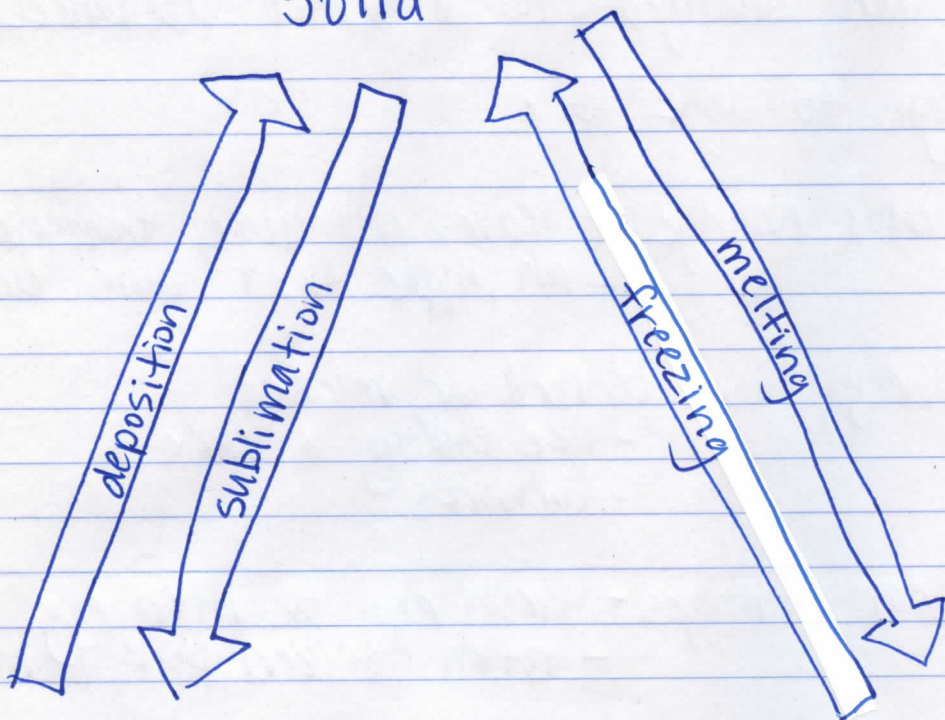 Solid
deposition
sublimation
freezing
melting